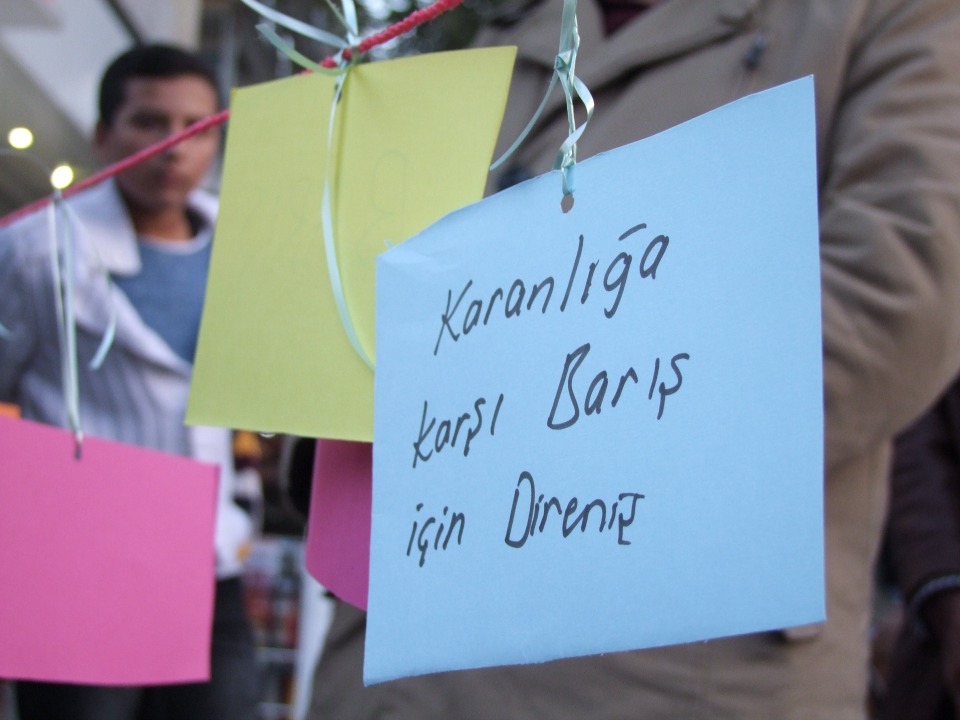 Karanlığa
karşı Barış
için Direniş